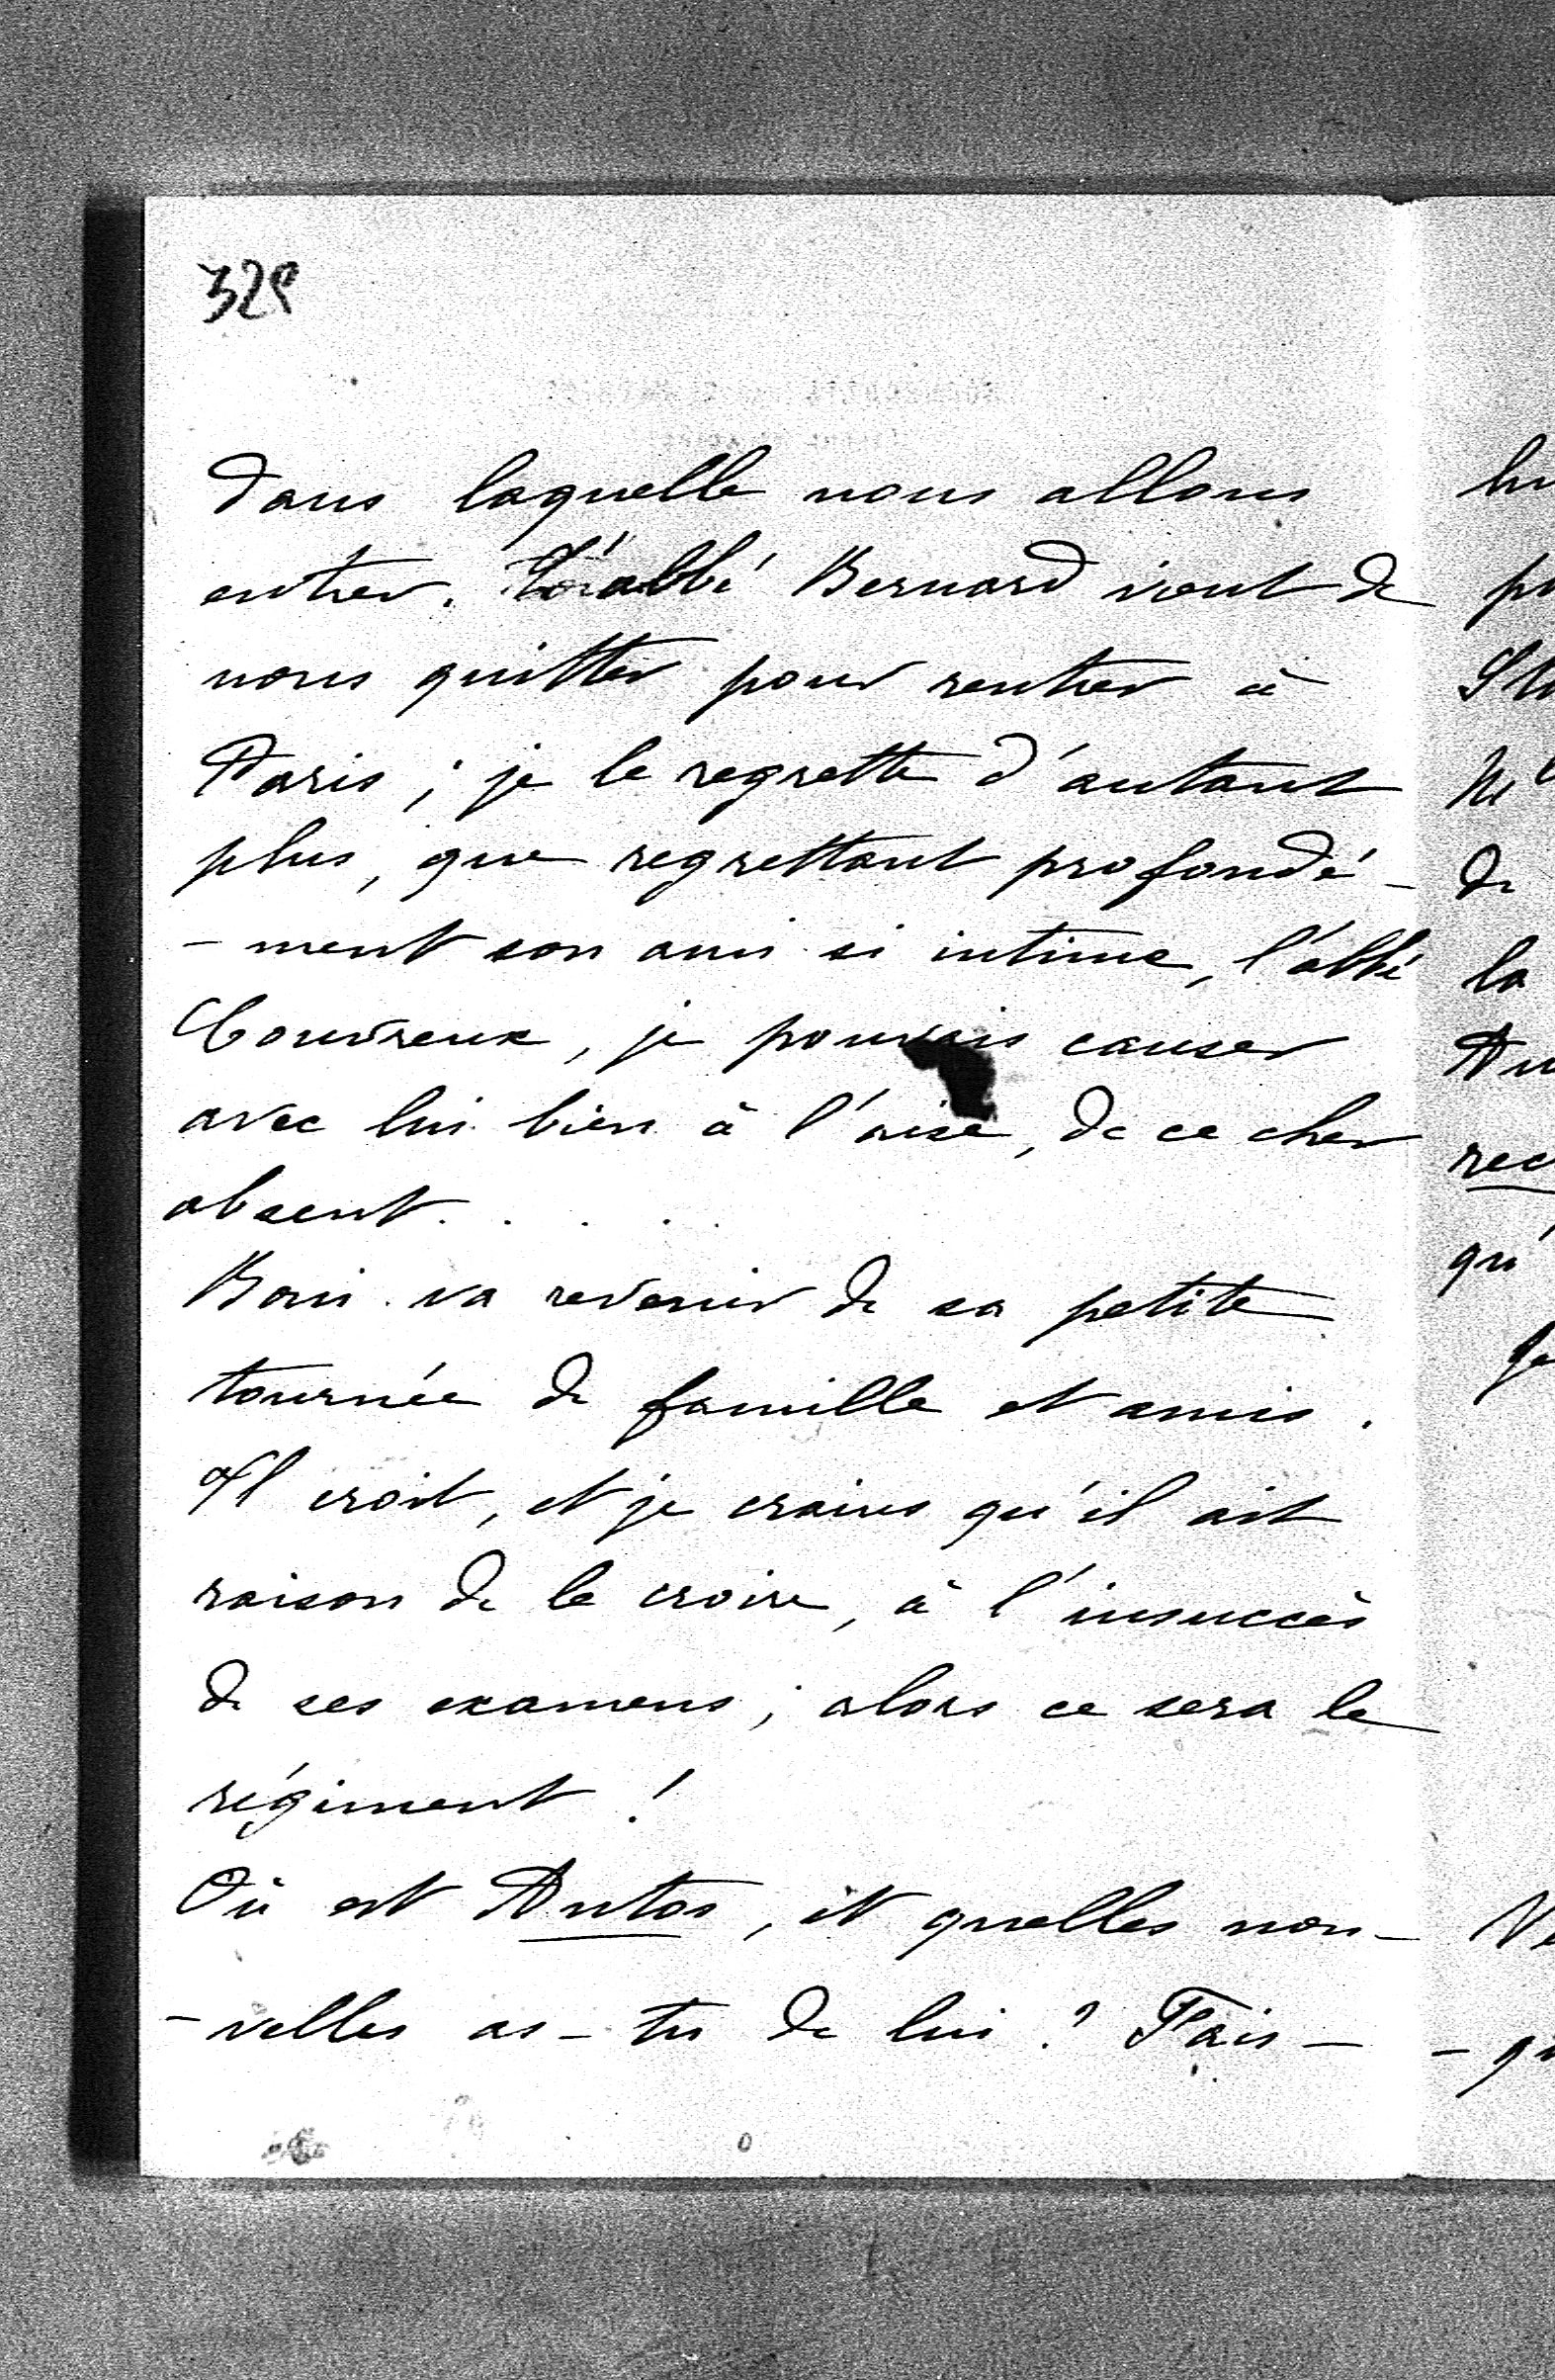 329
dans laquelle nous allons
entrer. L'abbé Bernard vient de
nous quitter pour rentrer à
Paris ; je le regrette d'autant
plus, que regrettant profondé-
- ment son ami si intime, l'abbé
Couvreux, je pouvais causer
avec lui bien à l'aise, de ce cher
absent. . . . .
Boni va revenir de sa petite
tournée de famille et amis.
Il croit, et je crains qu'il ait
raison de le croire, à l'insuccès
de ses examens ; alors ce sera le
régiment !
Où est Antos, et quelles nou-
- velles as-tu de lui ? Fais-